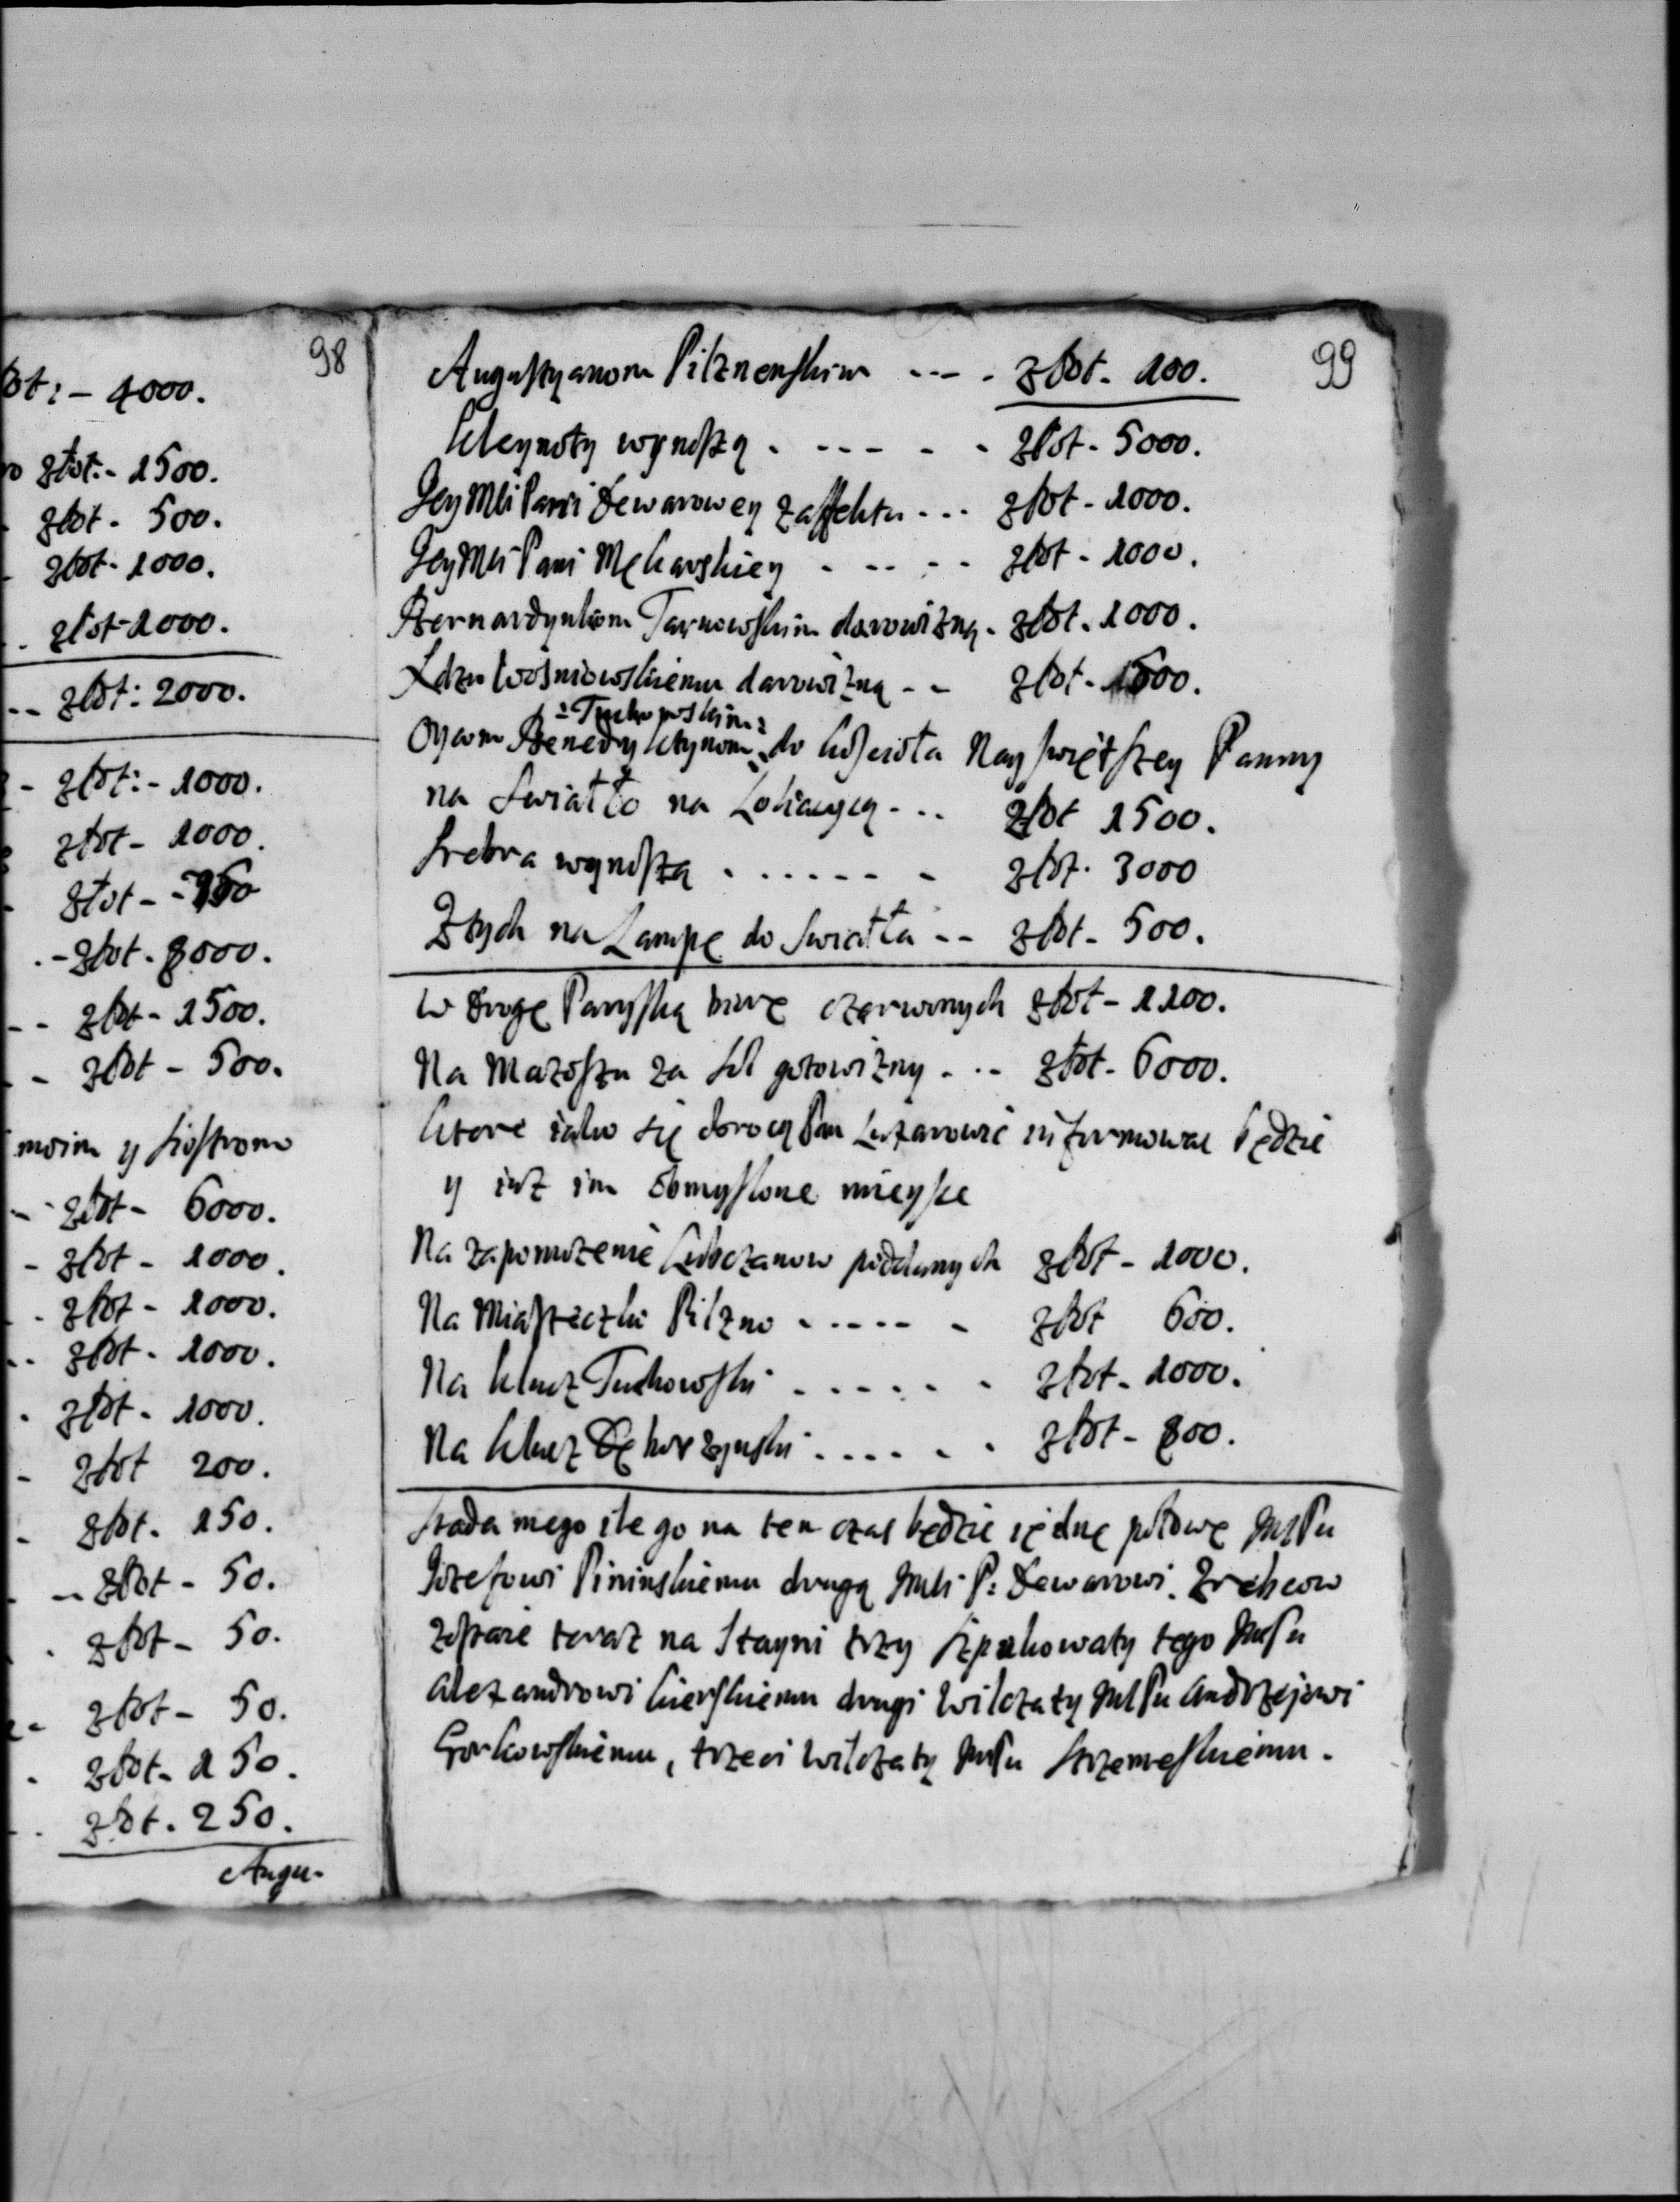 98
łot: - 4000.
złot: - 1500.
złot - 500.
złot - 1000.
złot - 1000.
złot: 2000.
złot: - 1000.
złot - 1000.
złot -
złot - 8000.
złot - 1500.
złot - 500.
moim y siostrom
złot - 6000.
złot - 1000.
złot - 1000.
złot - 1000.
złot - 1000.
złot 200.
złot. 150.
złot - 50.
złot - 50.
złot - 50.
złot - 150.
złot. 250.
Augu-
99
Augustyanom Pilznenskim --- . złot. 100.
Kleynoty wynoszą . - - - - . złot. 5000.
Jey Mści Pani Dewarowey zaffektu ... złot - 1000.
Jey Mści Pani Mękarskiey . - - . - złot - 1000.
Bernardynkom Tarnowskim darowizną. złot. 1000.
Xdzu Wośniowskiemu darowizną - - złot -
Tuchowskim
Oycom Benedyktynom do kościoła Nayświętszey Panny
na Swiatło na Lokaycyą - .. złot 1500.
Srebra wynoszą . . . - - - - złot. 3000
Ztych na Lampę do Swiatła - - złot - 500.
W drogę Paryską biorę czerwonych złot - 1100.
Na Mazoszu za Sol gotowizny . .. złot. 6000.
ktore iako się obrocą Pan Lazarowic informować będzie
y iuż im obmyslone mieysce
Na zapomożenie Lubczanow poddanych złot - 1000.
Na Miasteczko Pilzno . - - - - - złot 600.
Na klucz Tuchowski . . - . - . - złot - 1000.
Na klucz Dękorzynski . . . . - . . złot - 800.
Stada mego ile go na ten czas będzie iednę połowę JmPu
Jozefowi Pininskiemu drugą Jmści P: Dewarowi. Zrebcow
zostaie teraz na Stayni trzy szpakowaty tego JmPu
Alexandrowi Kierskiemu drugi Wilczaty JmPu Andrzejowi
Gorkowskiemu, trzeci Wilczaty JmPu Strzemeskiemu.